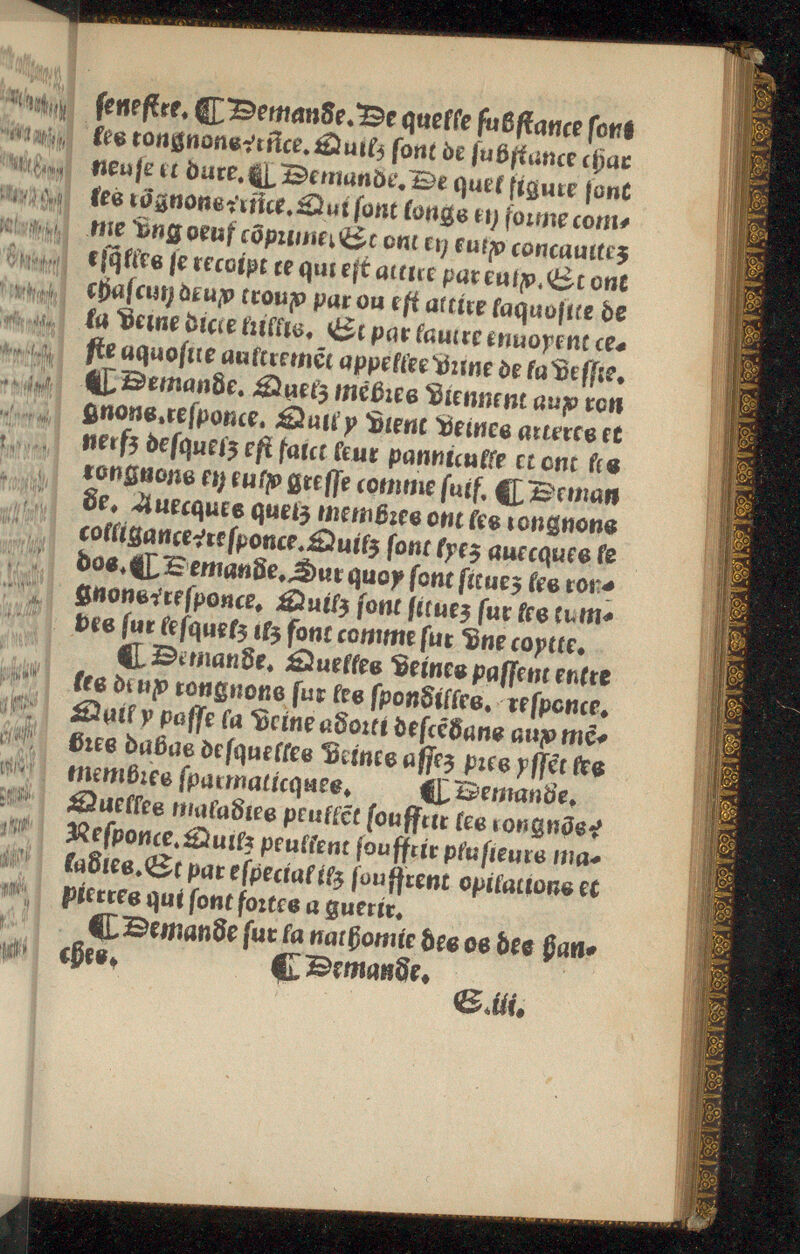 ſeneſtre. ¶ Demande. De quelle ſubſtance ſont
les rongnons?rñce. Quilz ſont de ſubſtance char
neuſe et dure. ¶ Demande. De quel figure ſont
les rõgnons?rñce. Qui ſont longs en forme com⸗
me vng oeuf cõprime, Et ont en eulx concauitez
eſq̃lles ſe recoipt ce qui eſt attire par eulx. Et ont
chaſcun deux troux par ou eſt attire laquoſite de
la veine dicte killis. Et par lautre enuoyent ce⸗
ſte aquoſite aultremẽt appellee vrine de la veſſie.
¶ Demande. Quelz mẽbres viennent aux ron
gnons.reſponce. Quil y vient veines arteres et
nerfz deſquelz eſt faict leur pannicule et ont les
rongnons en eulx greſſe comme ſuif. ¶ Deman
de. Auecques quelz membres ont les rongnons
colligance?reſponce. Quilz ſont lyez auecques le
dos. ¶ Demande. Sur quoy ſont ſituez les ron⸗
gnons?reſponce. Quilz ſont ſituez ſur les lum⸗
bes ſur leſquelz ilz ſont comme ſur vne coytte.
¶ Demande. Quelles veines paſſent entre
les deux rongnons ſur les ſpondilles. reſponce.
Quil y paſſe la veine adorti deſcẽdans aux mẽ⸗
bres dabas deſquelles veines aſſez pres yſſẽt les
membres ſparmaticques. ¶ Demande.
Quelles maladies peullẽt ſouffrir les rongnõs?
Reſponce. Quilz peullent ſouffrir pluſieurs ma⸗
ladies. Et par eſpecial ilz ſouffrent opilations et
pierres qui ſont fortes a guerir.
¶ Demande ſur la nathomie des os des han⸗
ches. ¶ Demande.
E.iii.